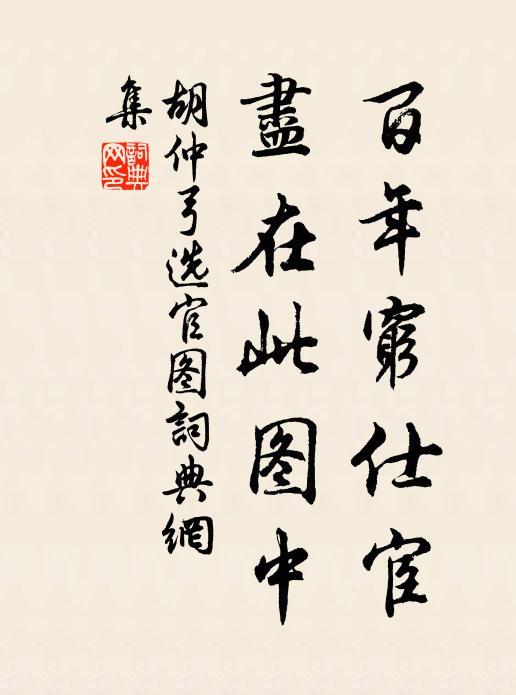 百年窮仕宦
盡在此图中
胡仲弓選官图詞典網
集
詞典网印